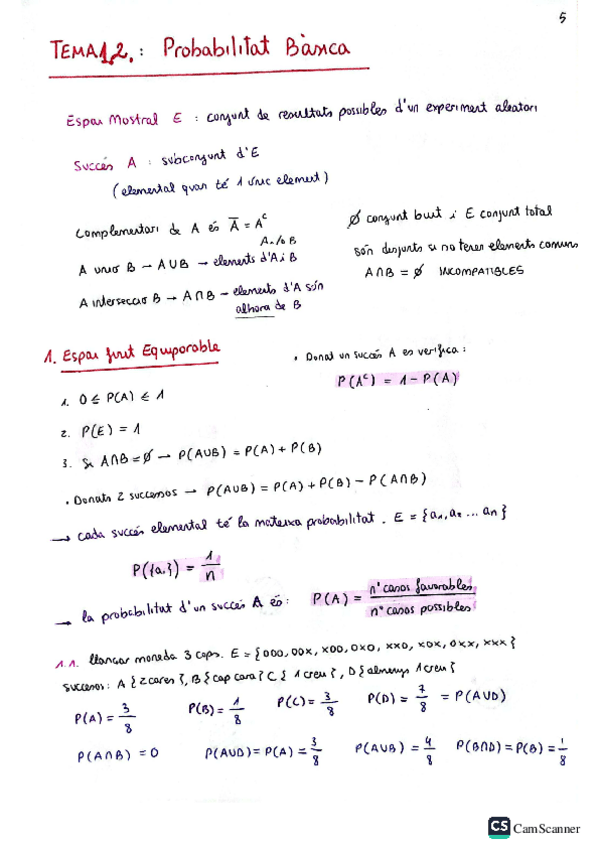 5
TEMA 1.2. : Probabilitat Bàsica
Espai Mostral E : conjunt de resultats possibles d'un experiment aleatori
Succés A : subconjunt d'E
(elemental quan té 1 únic element)
Complementari de A és A̅ = Aᶜ
A i/o B
A unió B → A∪B → elements d'A i B
A intersecció B → A∩B → elements d'A són
alhora de B
∅ conjunt buit i E conjunt total
són disjunts si no tenen elements comuns
A∩B = ∅ INCOMPATIBLES
1. Espai finit Equiporable
1. 0 ≤ P(A) ≤ 1
2. P(E) = 1
3. Si A∩B = ∅ → P(A∪B) = P(A) + P(B)
• Donat un succés A es verifica :
P(Aᶜ) = 1 - P(A)
• Donats 2 successos → P(A∪B) = P(A) + P(B) - P(A∩B)
→ cada succés elemental té la mateixa probabilitat. E = {a₁, a₂ ... an}
P({aᵢ}) = 1/n
→ la probabilitat d'un succés A és: P(A) = nº casos favorables / nº casos possibles
1.1. llançar moneda 3 cops. E = {000, 00x, x00, 0x0, xx0, x0x, 0xx, xxx}
Succesos: A {2 cares}, B {cap cara} C {1 creu}, D {almenys 1 creu}
P(A) = 3/8 P(B) = 1/8 P(C) = 3/8 P(D) = 7/8 = P(A∪D)
P(A∩B) = 0 P(A∪D) = P(A) = 3/8 P(A∪B) = 4/8 P(B∩D) = P(B) = 1/8
CS CamScanner